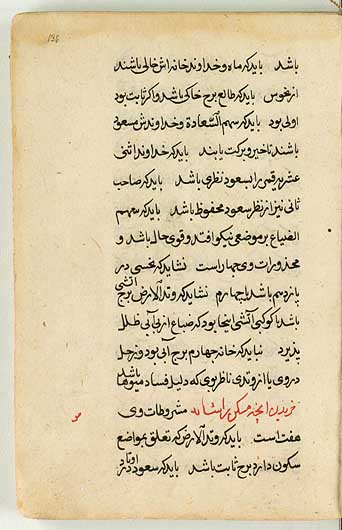 باشد باید که ماه و خداوند خانه اش خالی باشند
از نحوس باید که طالع برج خاکی باشد و اگر ثابت بود
اولی بود باید که سهم السعادة و خداوندش مسعود
باشند تا خیر و برکت یابند باید که خداوند اثنی
عشر بر قمر را بسعود نظری باشد باید که صاحب
ثانی نیز از نظر سعود محفوظ باشد باید که سهم
الضیاع بر موضعی نیکو افتد و قوی حال باشد و
محذورات وی چهار است نشاید که نحسی در
یازدهم باشد یا چهارم نشاید که وتد الارض برج آتشی
باشد یا کوکبی آتشی اینجا بود که ضیاع از بی آبی خلل
پذیرد نباید که خانه چهارم برج آبی بود و زحل
در وی یا از وتدی ناظر بوی که دلیل فساد میوها باشد
خریدن مسکن مشروطات وی
هفت است باید که وتد الارض که تعلق بمواضع
سکون دارد برج ثابت باشد باید که سعود در اوتاد